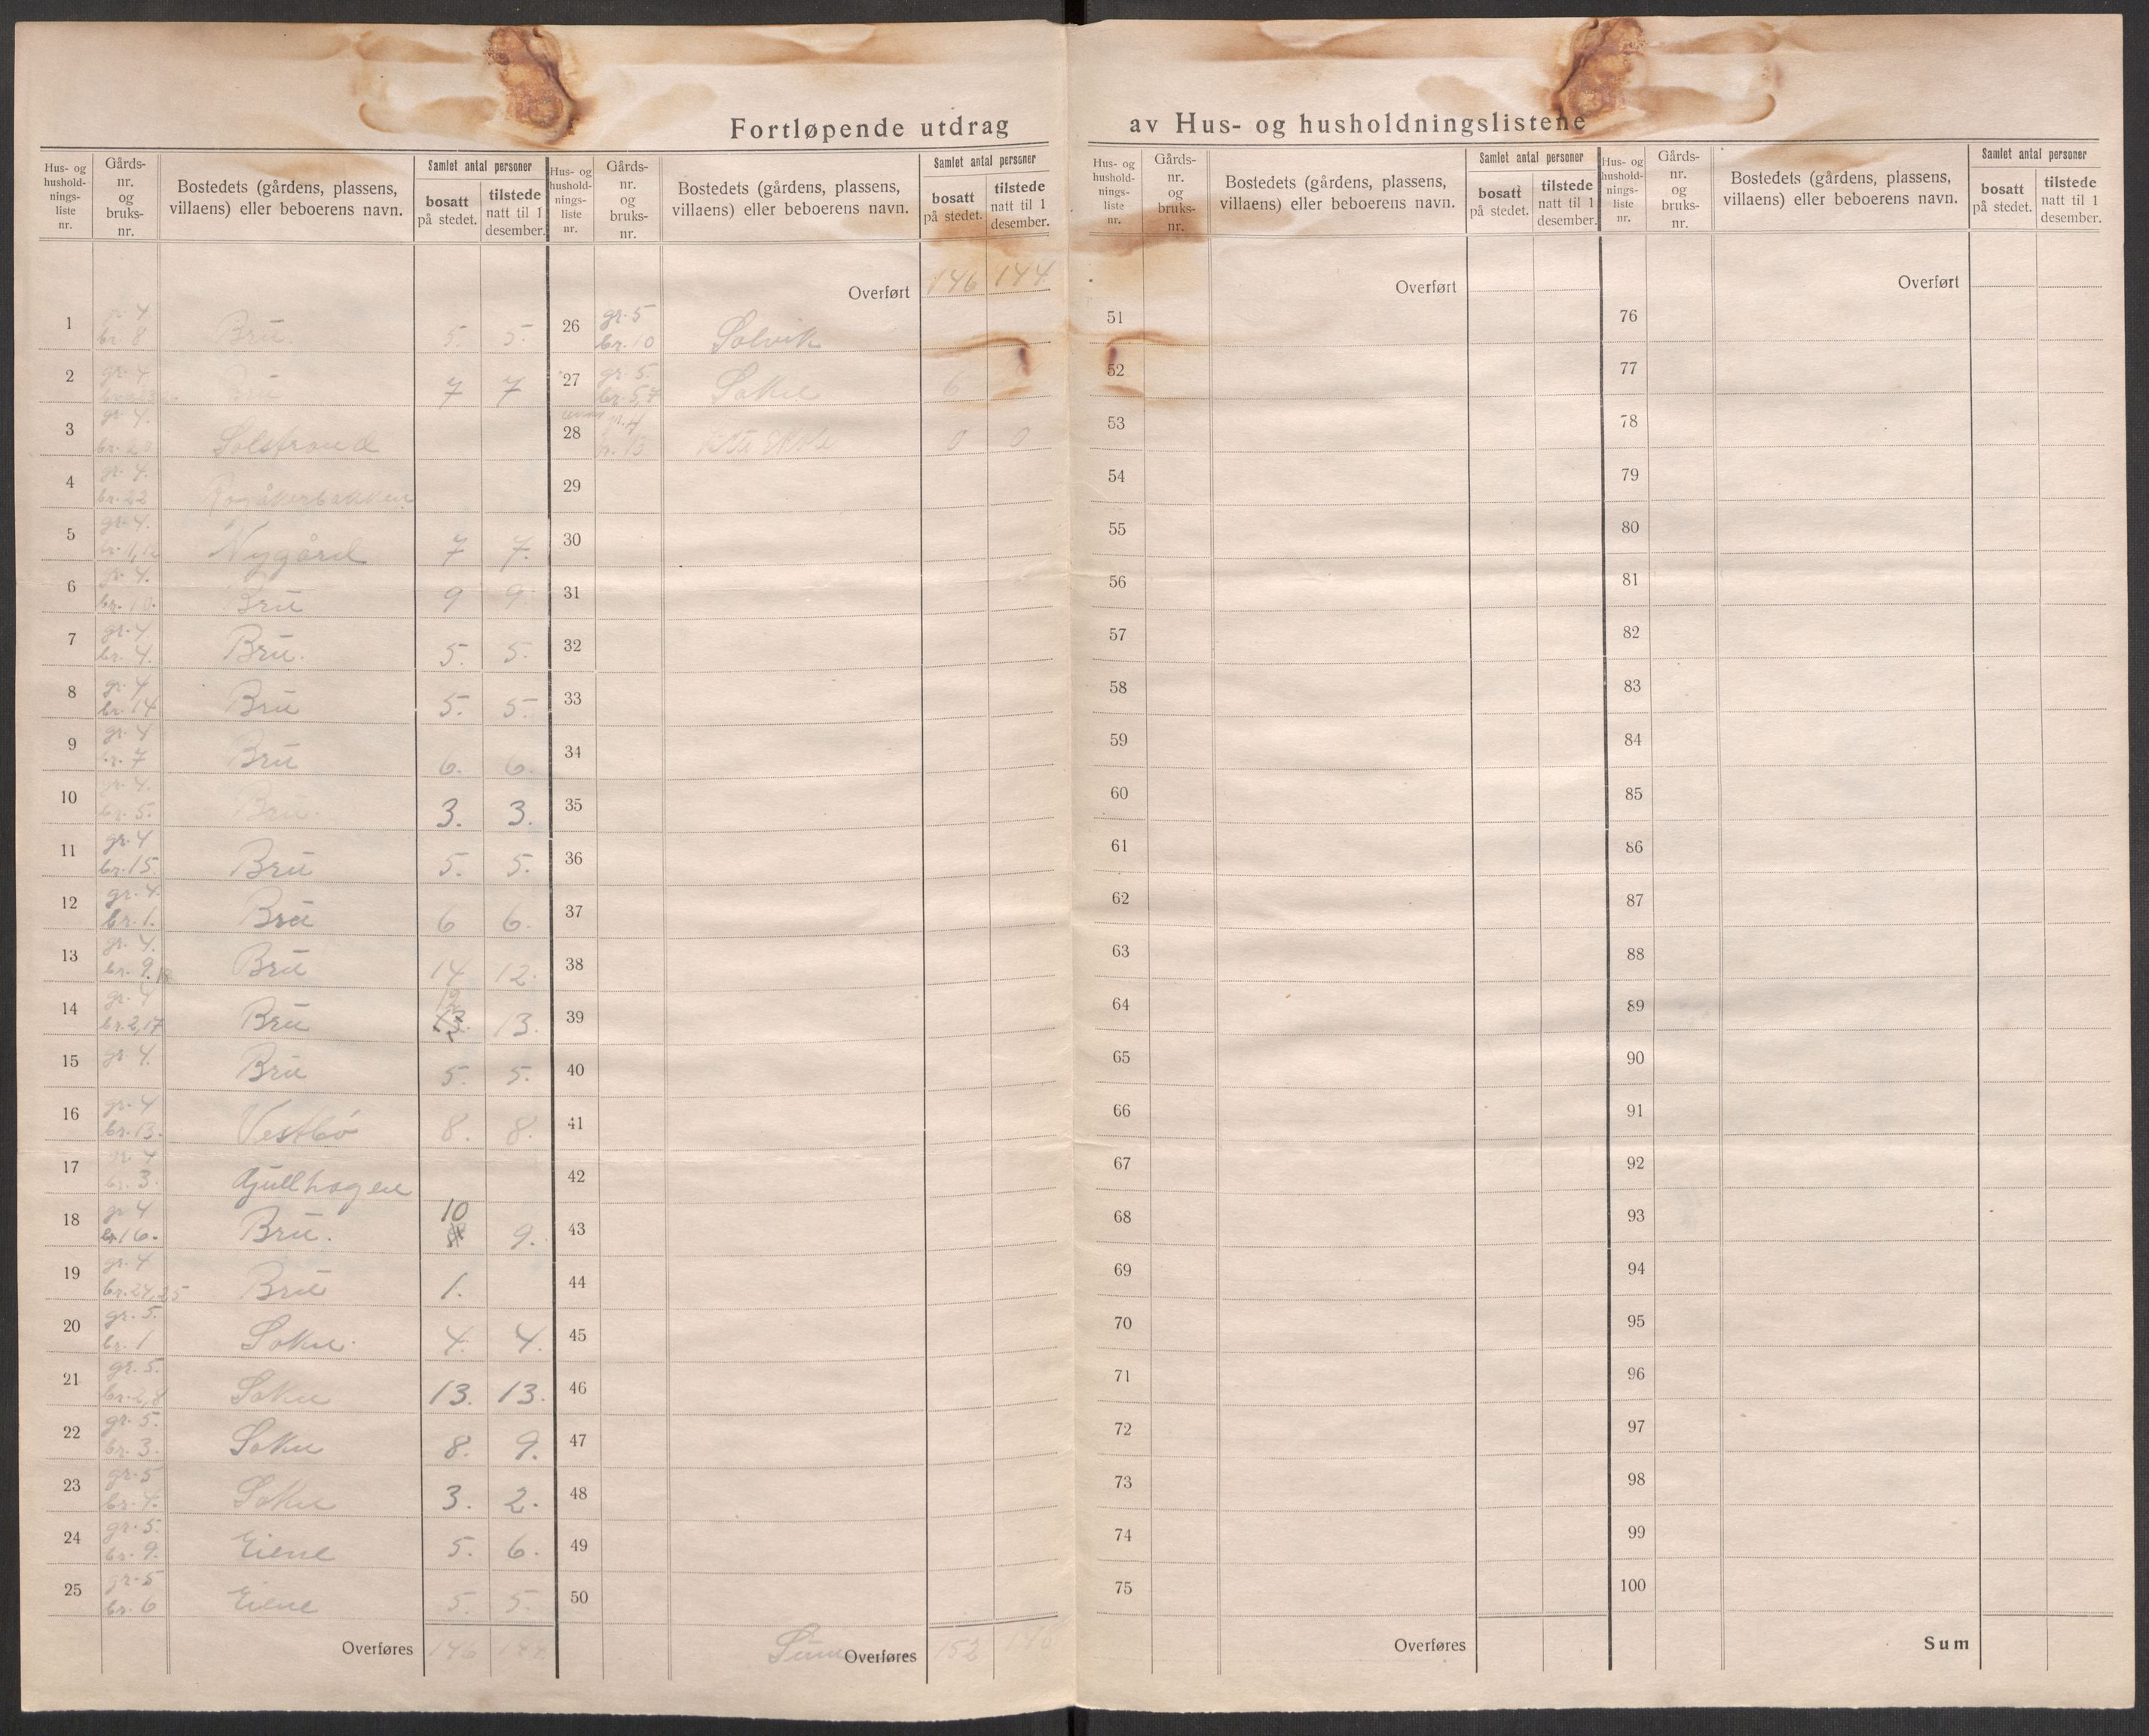 Fortløpende utdrag av Hus- og husholdningslistene
Hus- og hushold-nings-liste nr.
Gårds-nr. og bruks-nr.
Bostedets (gårdens, plassens, villaens) eller beboerens navn.
Samlet antal personer
bosatt på stedet.
tilstede natt til 1 desember.
Hus- og hushold-nings-liste nr.
Gårds-nr. og bruks-nr.
Bostedets (gårdens, plassens, villaens) eller beboerens navn.
Samlet antal personer
bosatt på stedet.
tilstede natt til 1 desember.
1 gr. 4 br. 8 Bru 5. 5.
2 gr. 4 Bru 7 7
3 gr. 4. br. 20 Solstrand
4 gr. 4. br. 22
5 gr. 4. br. 11,12 Nygård 7 7.
6 gr. 4. br. 10. Bru 9 9
7 gr. 4 br. 4. Bru. 5. 5.
8 gr. 4 br. 14 Bru 5. 5.
9 gr. 4 br. 7 Bru 6. 6.
10 gr. 4. br. 5. Bru. 3. 3.
11 gr. 4 br. 15. Bru 5. 5.
12 gr. 4. br. 1. Bru 6 6.
13 gr. 4. br. 9, Bru 14 12.
14 gr. 4 br. 2,17 Bru 12 13. 13.
15 gr. 4. Bru 5. 5.
16 gr. 4 br. 13. Vestbö 8. 8.
17 gr. 4 br. 3. Gjullhagen
18 gr. 4 br 16. Bru. 10 9.
19 gr. 4 br. 24,25 Bru 1.
20 gr. 5. br. 1 Sokn. 4. 4.
21 gr. 5. br. 2,8 Sokn 13. 13.
22 gr. 5. br. 3. Sokn 8. 9.
23 gr. 5 br. 4. Sokn 3. 2.
24 gr. 5. br. 9. Eiene 5. 6.
25 gr. 5 br. 6 Eiene 5. 5.
Overføres 146 144
Overført 146 144
26 gr. 5 br. 10 Solvik
27 gr. 5. br. 5,7 Sokn 6
28 0 0
29
30
31
32
33
34
35
36
37
38
39
40
41
42
43
44
45
46
47
48
49
50
Sum Overføres 152
Hus- og hushold-nings-liste nr.
Gårds-nr. og bruks-nr.
Bostedets (gårdens, plassens, villaens) eller beboerens navn.
Samlet antal personer
bosatt på stedet.
tilstede natt til 1 desember.
Overført
51
52
53
54
55
56
57
58
59
60
61
62
63
64
65
66
67
68
69
70
71
72
73
74
75
Overføres
Hus- og hushold-nings-liste nr.
Gårds-nr. og bruks-nr.
Bostedets (gårdens, plassens, villaens) eller beboerens navn.
Samlet antal personer
bosatt på stedet.
tilstede natt til 1 desember.
Overført
76
77
78
79
80
81
82
83
84
85
86
87
88
89
90
91
92
93
94
95
96
97
98
99
100
Sum